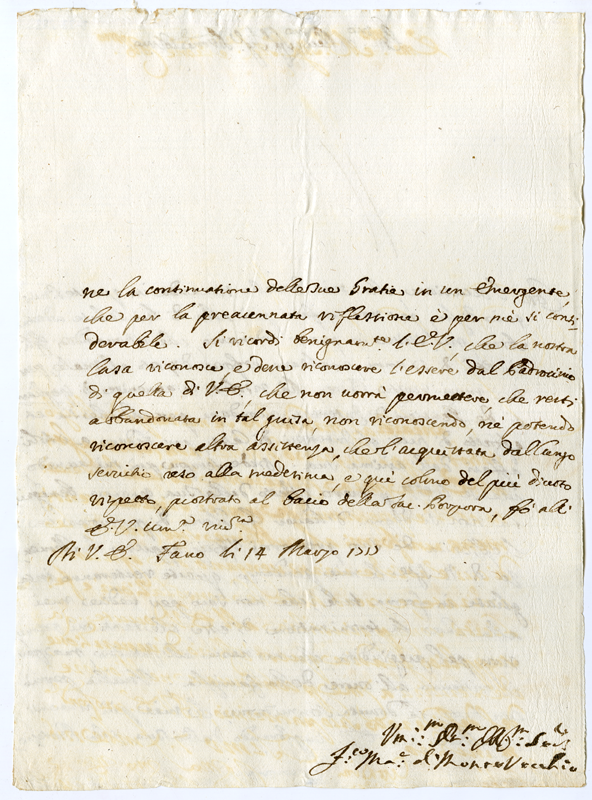 ne la continuatione delle sue Gratie in un Emergente,
che per la preacennata riflessione è per mè sì consi,
derabile. Si ricordi benignam.te l'E.V., che la nostra
Casa riconosce, e deve riconoscere l'essere dal Padrocinio
di quella di V.E., che non vorrà permettere che resti
abbandonata in tal guisa, non riconoscendo, nè potendo
riconoscere altra assistenza, che l'acquistata dal lungo
servitio reso alla medesima, e quì colmo del più divoto
rispetto, prostrato al bacio della Sac. Porpora, fò all'
E.V. um.a riv.za
Di V.E. Fano li 14 Marzo 1715
Um.mo
Fr.co Ma.a di Monte Vecchio